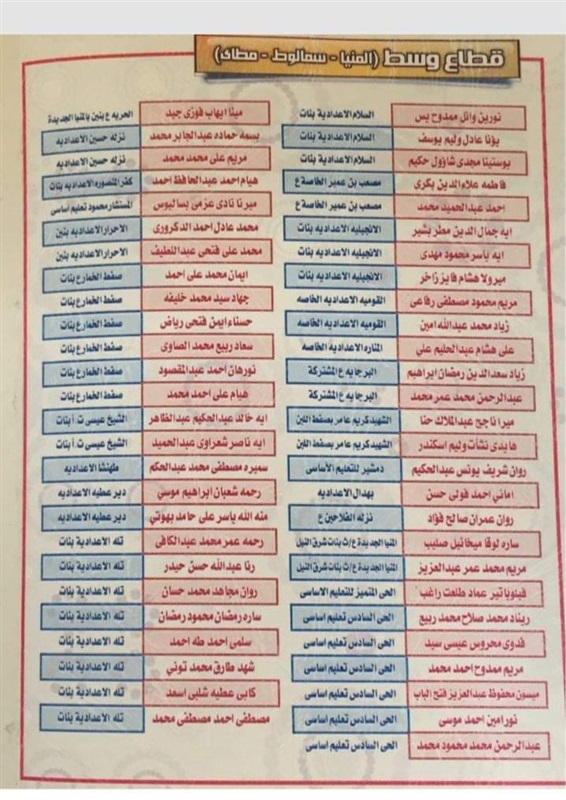 قطاع وسط (المنيا - سمالوط - مطاى)
نورين وائل ممدوح يس السلام الاعدادية بنات
يؤنا عادل وليم يوسف السلام الاعدادية بنات
يوستينا مجدى شاؤول حكيم السلام الاعدادية بنات
فاطمه علام الدين بكرى مصعب بن عمير الخاصة ع
احمد عبدالحميد محمد مصعب بن عمير الخاصة ع
ايه جمال الدين مطر بشير الانجيليه الاعداديه بنات
ايه ياسر محمود مهدى الانجيليه الاعداديه بنات
ميرولا هشام فايز زاخر الانجيليه الاعداديه بنات
مريم محمود مصطفى رفاعى القوميه الاعداديه الخاصه
زياد محمد عبدالله امين القوميه الاعداديه الخاصه
على هشام عبدالحليم علي المناره الاعداديه الخاصه
زياد سعدالدين رمضان ابراهيم البرجايه ع المشتركة
عبدالرحمن محمد عمر محمد البرجايه ع المشتركة
ميرا ناجح عبدالملاك حنا الشهيد كريم عامر بصفط اللبن
هايدى نشأت وليم اسكندر الشهيد كريم عامر بصفط اللبن
روان شريف يونس عبدالحكيم دمشير للتعليم الأساسى
اماني احمد فولى حسن بهدال الاعداديه
روان عمران صالح فؤاد نزله الفلاحين ع
ساره لوقا ميخائيل صليب المنيا الجديدة ع/ث بنات شرق النيل
مريم محمد عمر عبدالعزيز المنيا الجديدة ع/ث بنات شرق النيل
فيلوباتير عماد طلعت راغب الحى المتميز للتعليم الاساسى
ريناد محمد صلاح محمد ربيع الحى السادس تعليم اساسى
فدوى محروس عيسى سيد الحى السادس تعليم اساسى
مريم ممدوح احمد محمد الحى السادس تعليم اساسى
ميسون محفوظ عبدالعزيز فتح الباب الحى السادس تعليم اساسى
نورامين احمد موسى الحى السادس تعليم اساسى
عبدالرحمن محمد محمود محمد الحى السادس تعليم اساسى
مينا ايهاب فوزى جيد الحريه ع بنين بالمنيا الجديدة
بسمه حماده عبدالجابر محمد نزله حسين الاعداديه
مريم على محمد محمد نزله حسين الاعداديه
هيام احمد عبدالحافظ احمد كفر المنصوره الاعداديه بنات
ميرنا نادى عزمى بسالیوس المستشار محمود تعليم اساسى
محمد عادل احمد الدكرورى الاحرار الاعداديه بنين
محمد على فتحى عبداللطيف الاحرار الاعداديه بنين
ايمان محمد على احمد صفط الخمار ع بنات
جهاد سيد محمد خليفه صفط الخمار ع بنات
حسناء ايمن فتحى رياض صفط الخمار ع بنات
سعاد ربيع محمد الصاوى صفط الخمار ع بنات
نورهان احمد عبدالمقصود صفط الخمار ع بنات
هيام على احمد محمد صفط الخمار ع بنات
ايه خالد عبدالحكيم عبدالظاهر الشيخ عيسى ت.أ بنات
ايه ناصر شعراوى عبدالحميد الشيخ عيسى ت.أ بنات
سميره مصطفى محمد عبدالحكم طهنشا الاعداديه
رحمه شعبان ابراهيم موسى دير عطيه الاعداديه
منه الله ياسر على حامد بهوتي دير عطيه الاعداديه
رحمه عمر محمد عبدالكافى تله الاعدادية بنات
رنا عبدالله حسن حيدر تله الاعدادية بنات
روان مجاهد محمد حسان تله الاعدادية بنات
ساره رمضان محمود رمضان تله الاعدادية بنات
سلمى احمد طه احمد تله الاعدادية بنات
شهد طارق محمد توني تله الاعدادية بنات
كابى عطيه شلبى اسعد تله الاعدادية بنات
مصطفى احمد مصطفى محمد تله الاعدادية بنات